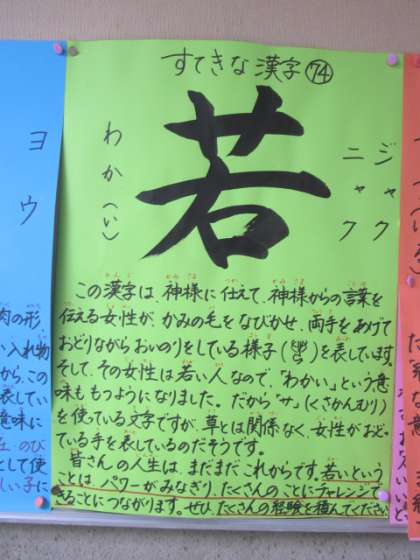 すてきな漢字 74
若
ジャク
ニャク
わか(い)
この漢字は、神様に仕えて、神様からの言葉を
伝える女性が、かみの毛をなびかせ、両手をあげて
おどりながらおいのりをしている様子()を表しています。
そして、その女性は若い人なので、「わかい」という意
味ももつようになりました。だから「サ」(くさかんむり)
を使っている文字ですが、草とは関係なく、女性がおど
っている手を表しているのだそうです。
皆さんの人生は、まだまだこれからです。若いという
ことは、パワーがみなぎり、たくさんのことにチャレンジで
きることにつながります。ぜひ、たくさんの経験を積んでください
ヨウ
肉の形
い入れ物
から、この
表してい
意味に
のび
として使
しい子に